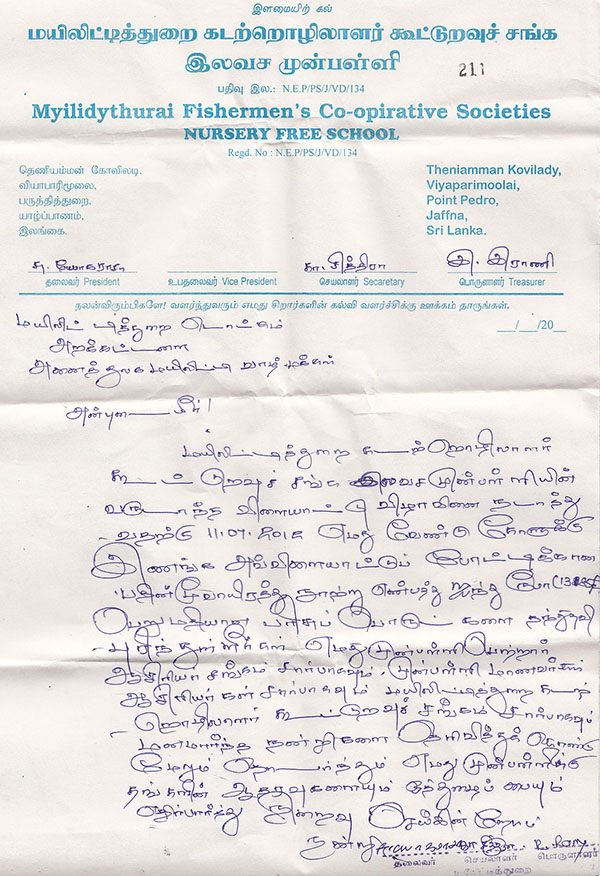 இளமையிற் கல்
மயிலிட்டித்துறை கடற்றொழிலாளர் கூட்டுறவுச் சங்க
இலவச முன்பள்ளி
211
பதிவு இல.: N.E.P/PS/J/VD/134
Myilidythurai Fishermen's Co-opirative Societies
NURSERY FREE SCHOOL
Regd. No : N.E.P/PS/J/VD/134
தெணியம்மன் கோவிலடி,
வியாபாரிமூலை,
பருத்தித்துறை,
யாழ்ப்பாணம்,
இலங்கை.
Theniamman Kovilady,
Viyaparimoolai,
Point Pedro,
Jaffna,
Sri Lanka.
சு. யோகராசா
கா. சித்திரா
இ. இராணி
தலைவர் President
உபதலைவர் Vice President
செயலாளர் Secaretary
பொருளாளர் Treasurer
நலன்விரும்பிகளே! வளர்ந்துவரும் எமது சிறார்களின் கல்வி வளர்ச்சிக்கு ஊக்கம் தாருங்கள்.
__/__/20__
மயிலிட்டித்துறை தோட்டம்
அறக்கட்டளை
அனைத்துலக மயிலிட்டி வாழ் மக்கள்
அன்புடையீர்!
மயிலிட்டித்துறை கடற்றொழிலாளர்
கூட்டுறவுச் சங்க இலவச முன்பள்ளியின்
வருடாந்த விளையாட்டு விழாவினை நடாத்து
-வதற்கு 11.07.2012 எமது வேண்டுகோளுக்கு
இணங்க அவ்விளையாட்டுப் போட்டிக்கான
பதின்மூவாயிரத்து நூற்று எண்பத்து ஐந்து ரூபா
பெறுமதியான பரிசுப் பொருட்களை தந்துதவி
-புரிந்துள்ளீர்கள் எமது முன்பள்ளி பெற்றோர்
ஆசிரியர் சங்கம் சார்பாகவும், முன்பள்ளி மாணவர்கள்
ஆசிரியர்கள் சார்பாகவும் மயிலிட்டித்துறை கடற்
-றொழிலாளர் கூட்டுறவுச் சங்கம் சார்பாகவும்
மனமார்ந்த நன்றிகளை தெரிவித்துக் கொண்டு
மேலும் தொடர்ந்தும் எமது முன்பள்ளிக்கு
தங்களின் ஆதரவுகளையும் ஒத்துழைப்பையும்
எதிர்பார்த்து நிறைவு செய்கின்றோம்
நன்றி
தலைவர் செயலாளர் பொருளாளர்